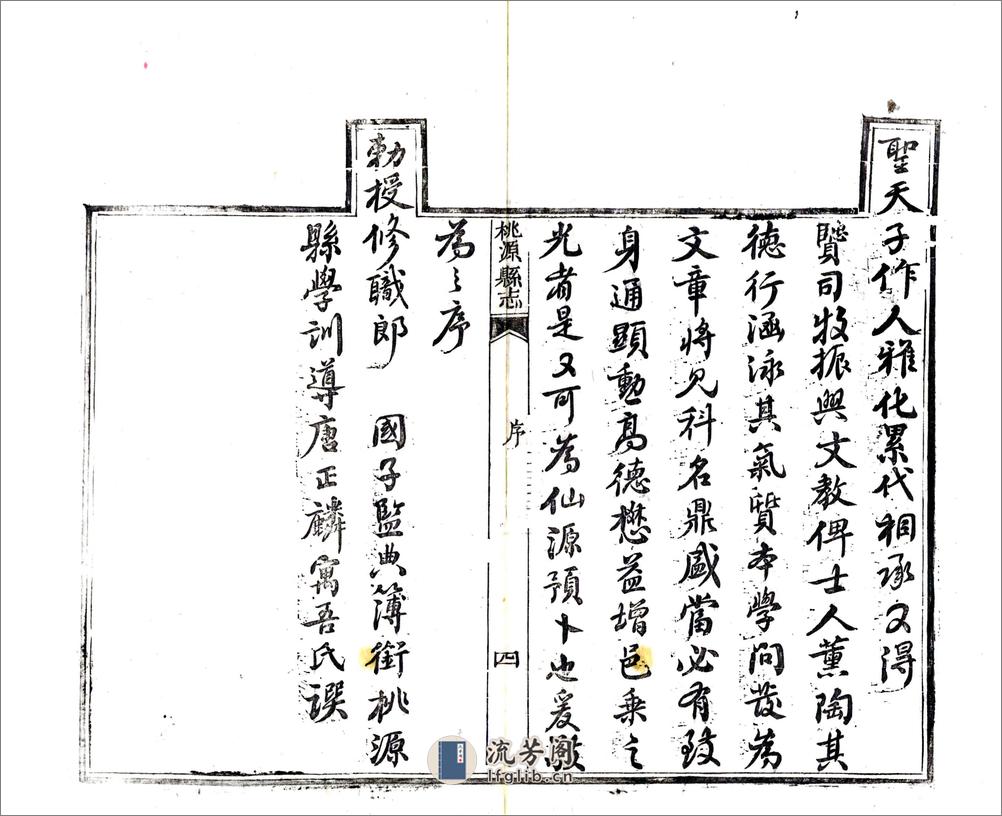 聖天子作人雅化累代相承又得
賢司牧振興文教俾士人薰陶其
德行涵泳其氣質本學問發為
文章將見科名鼎盛當必有致
身通顯勳高德懋益增邑乘之
光者是又可為仙源預卜也爰
為之序
桃源縣志
序
四
勅授修職郎 國子監典簿銜桃源
縣學訓導唐正麟寓吾氏譔
流芳阁
lfglib.cn